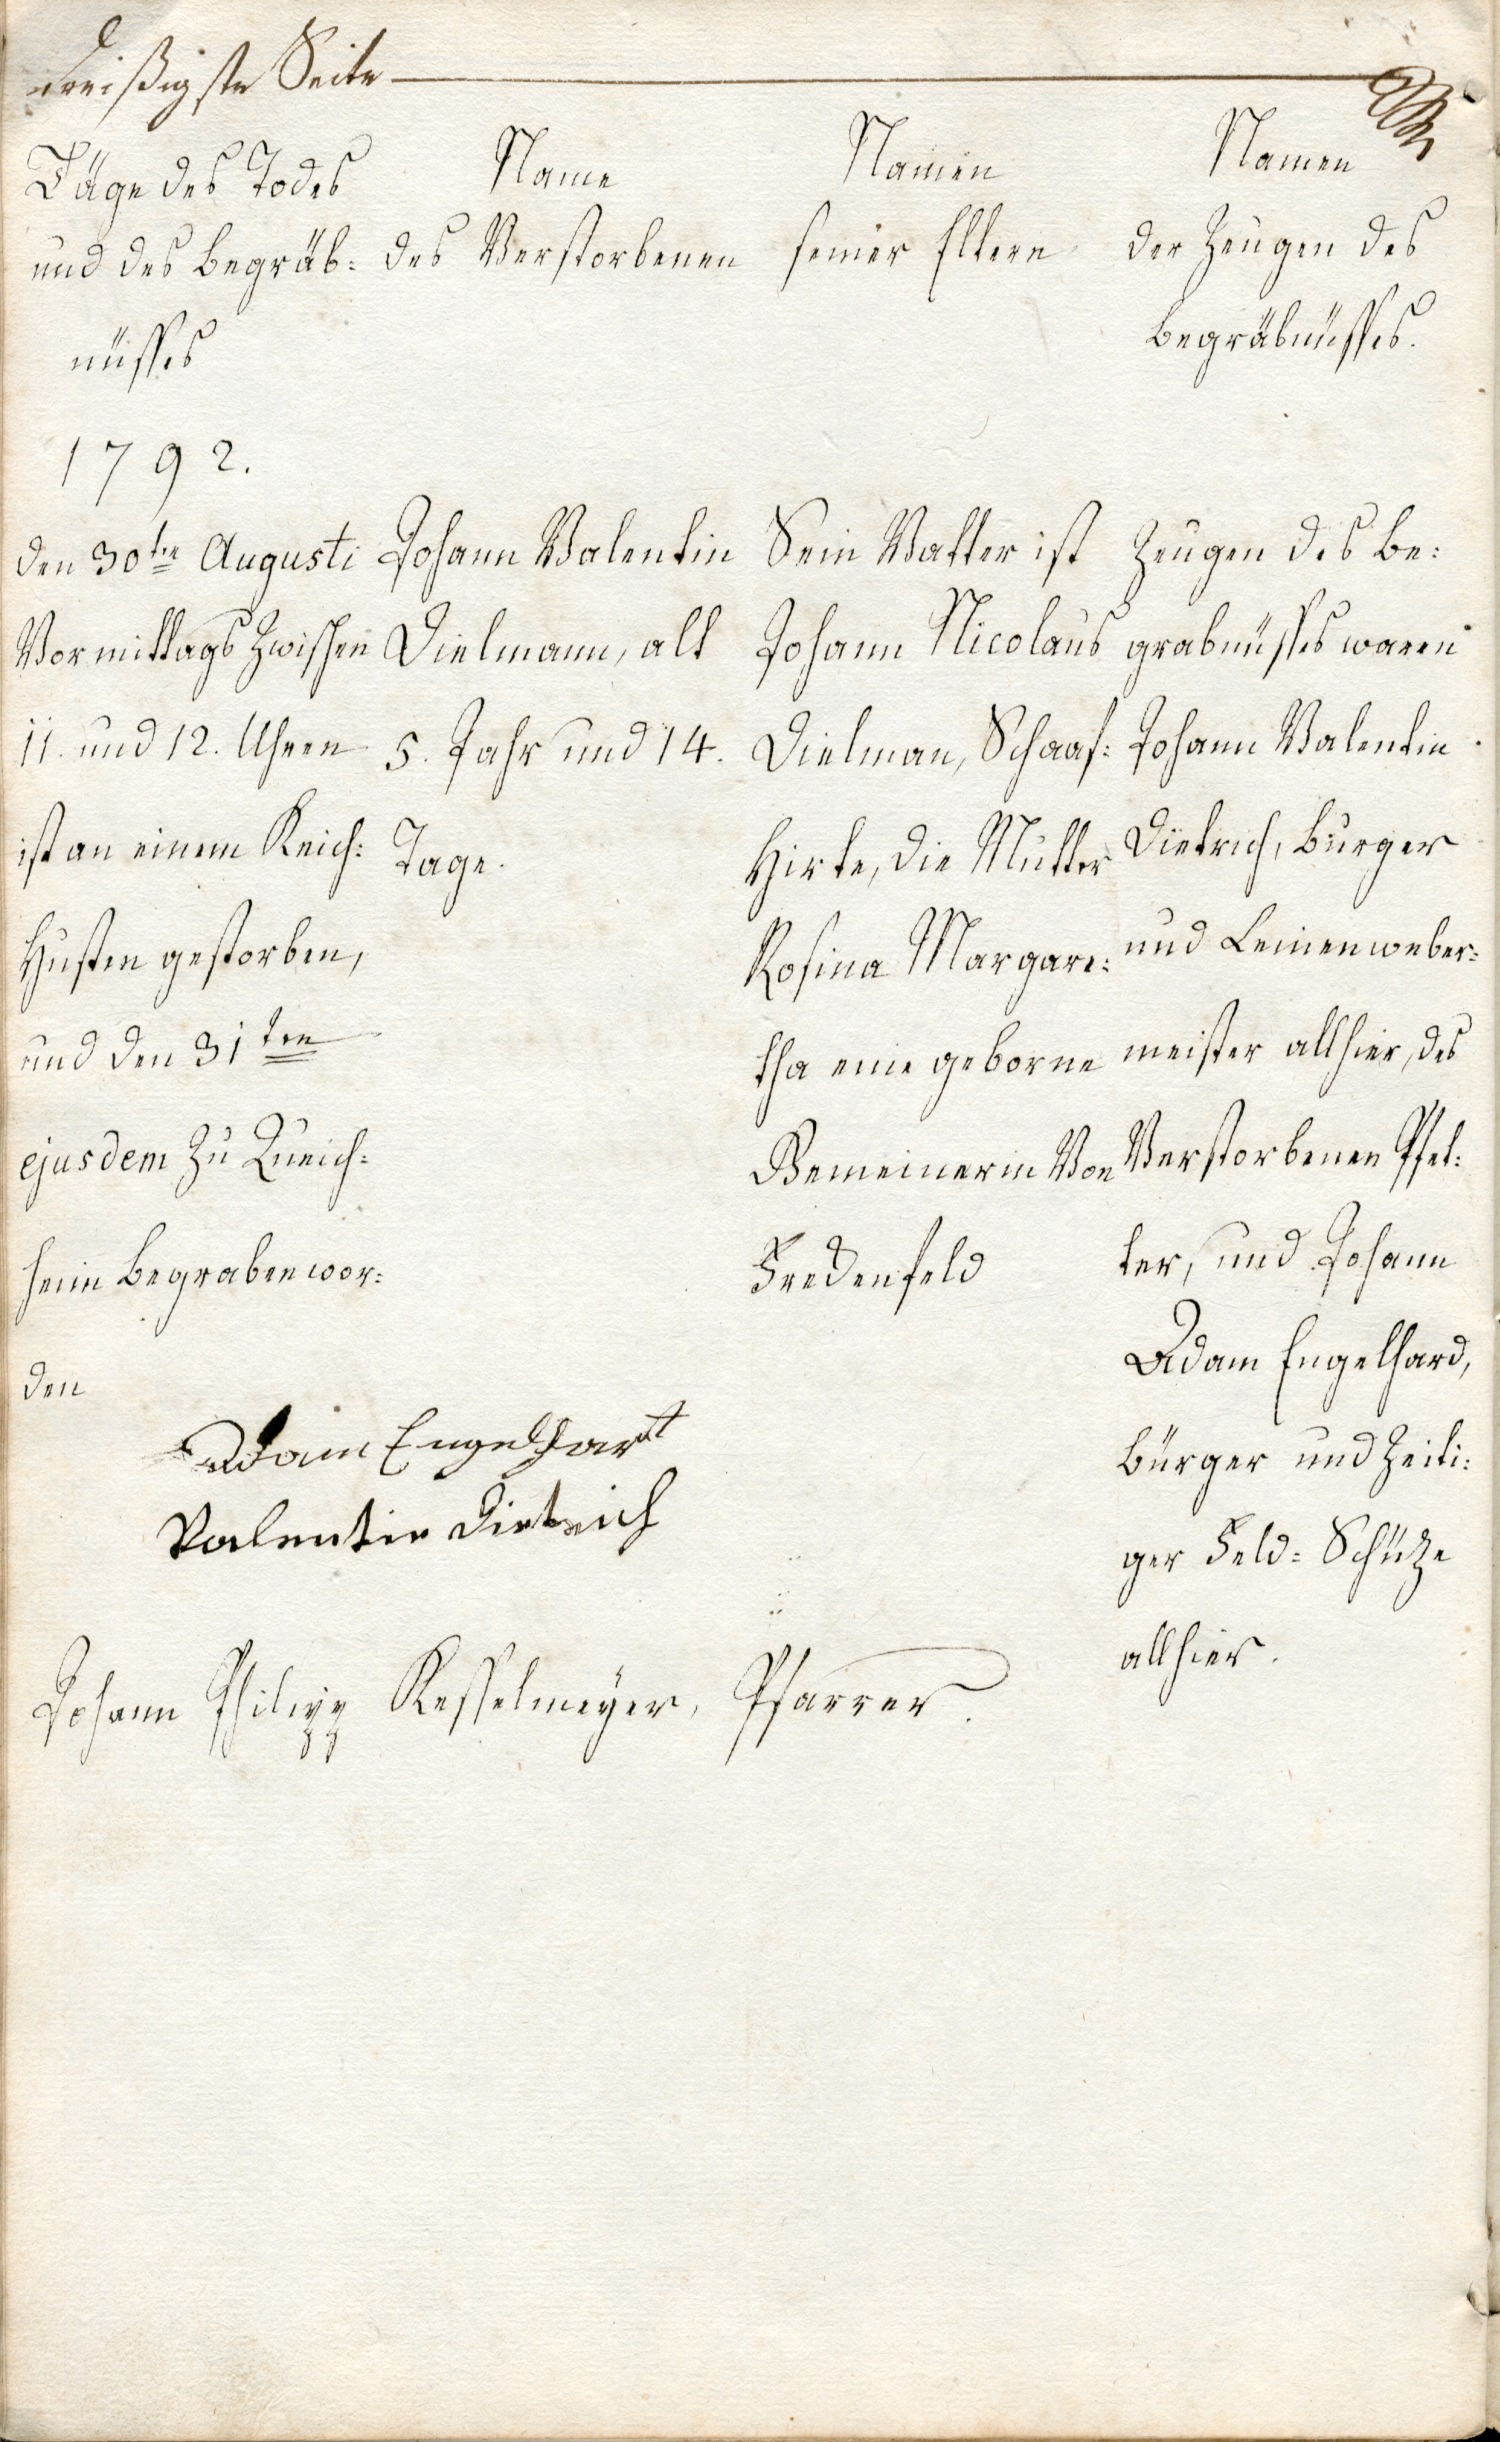 dreißigste Seite
Täge des Todes
und des Begräb:
nüsses
Name
des Verstorbenen
Namen
seiner Eltern
Namen
der Zeugen des
Begräbnüsses.
1792.
den 30ten Augusti
Vormittags zwischen
11. und 12. Uhren
ist an einem Keich:
Husten gestorben,
und den 31ten
ejusdem zu Queich:
heim begraben wor:
den
Johann Valentin
Dielmann, alt
5. Jahr und 14.
Tage.
Sein Vatter ist
Johann Nicolaus
Dielman, Schaaf:
Hirte, die Mutter
Rosina Margare:
tha eine geborne
Gemeinerin von
Fredenfeld
Zeugen des Be:
grabnüsses waren
Johann Valentin
Dietrich, Burger
und Leinenweber:
meister allhier, des
Verstorbenen Pfet:
ter, und Johann
Adam Engelhard,
Bürger und zeiti:
ger Feld=Schütze
allhier.
Adam Engelhart
Valentin Dietrich
Johann Philipp Kesselmeÿer, Pfarrer.